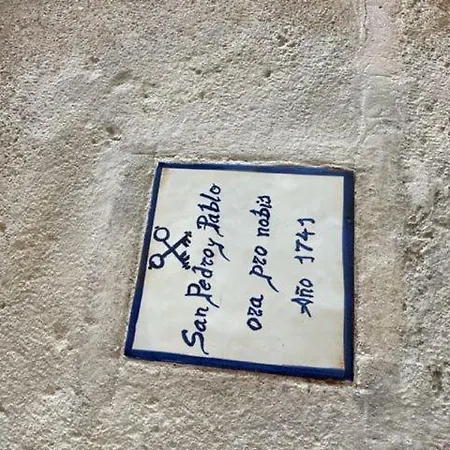 San Pedro y Pablo
ora pro nobis
Año 1741